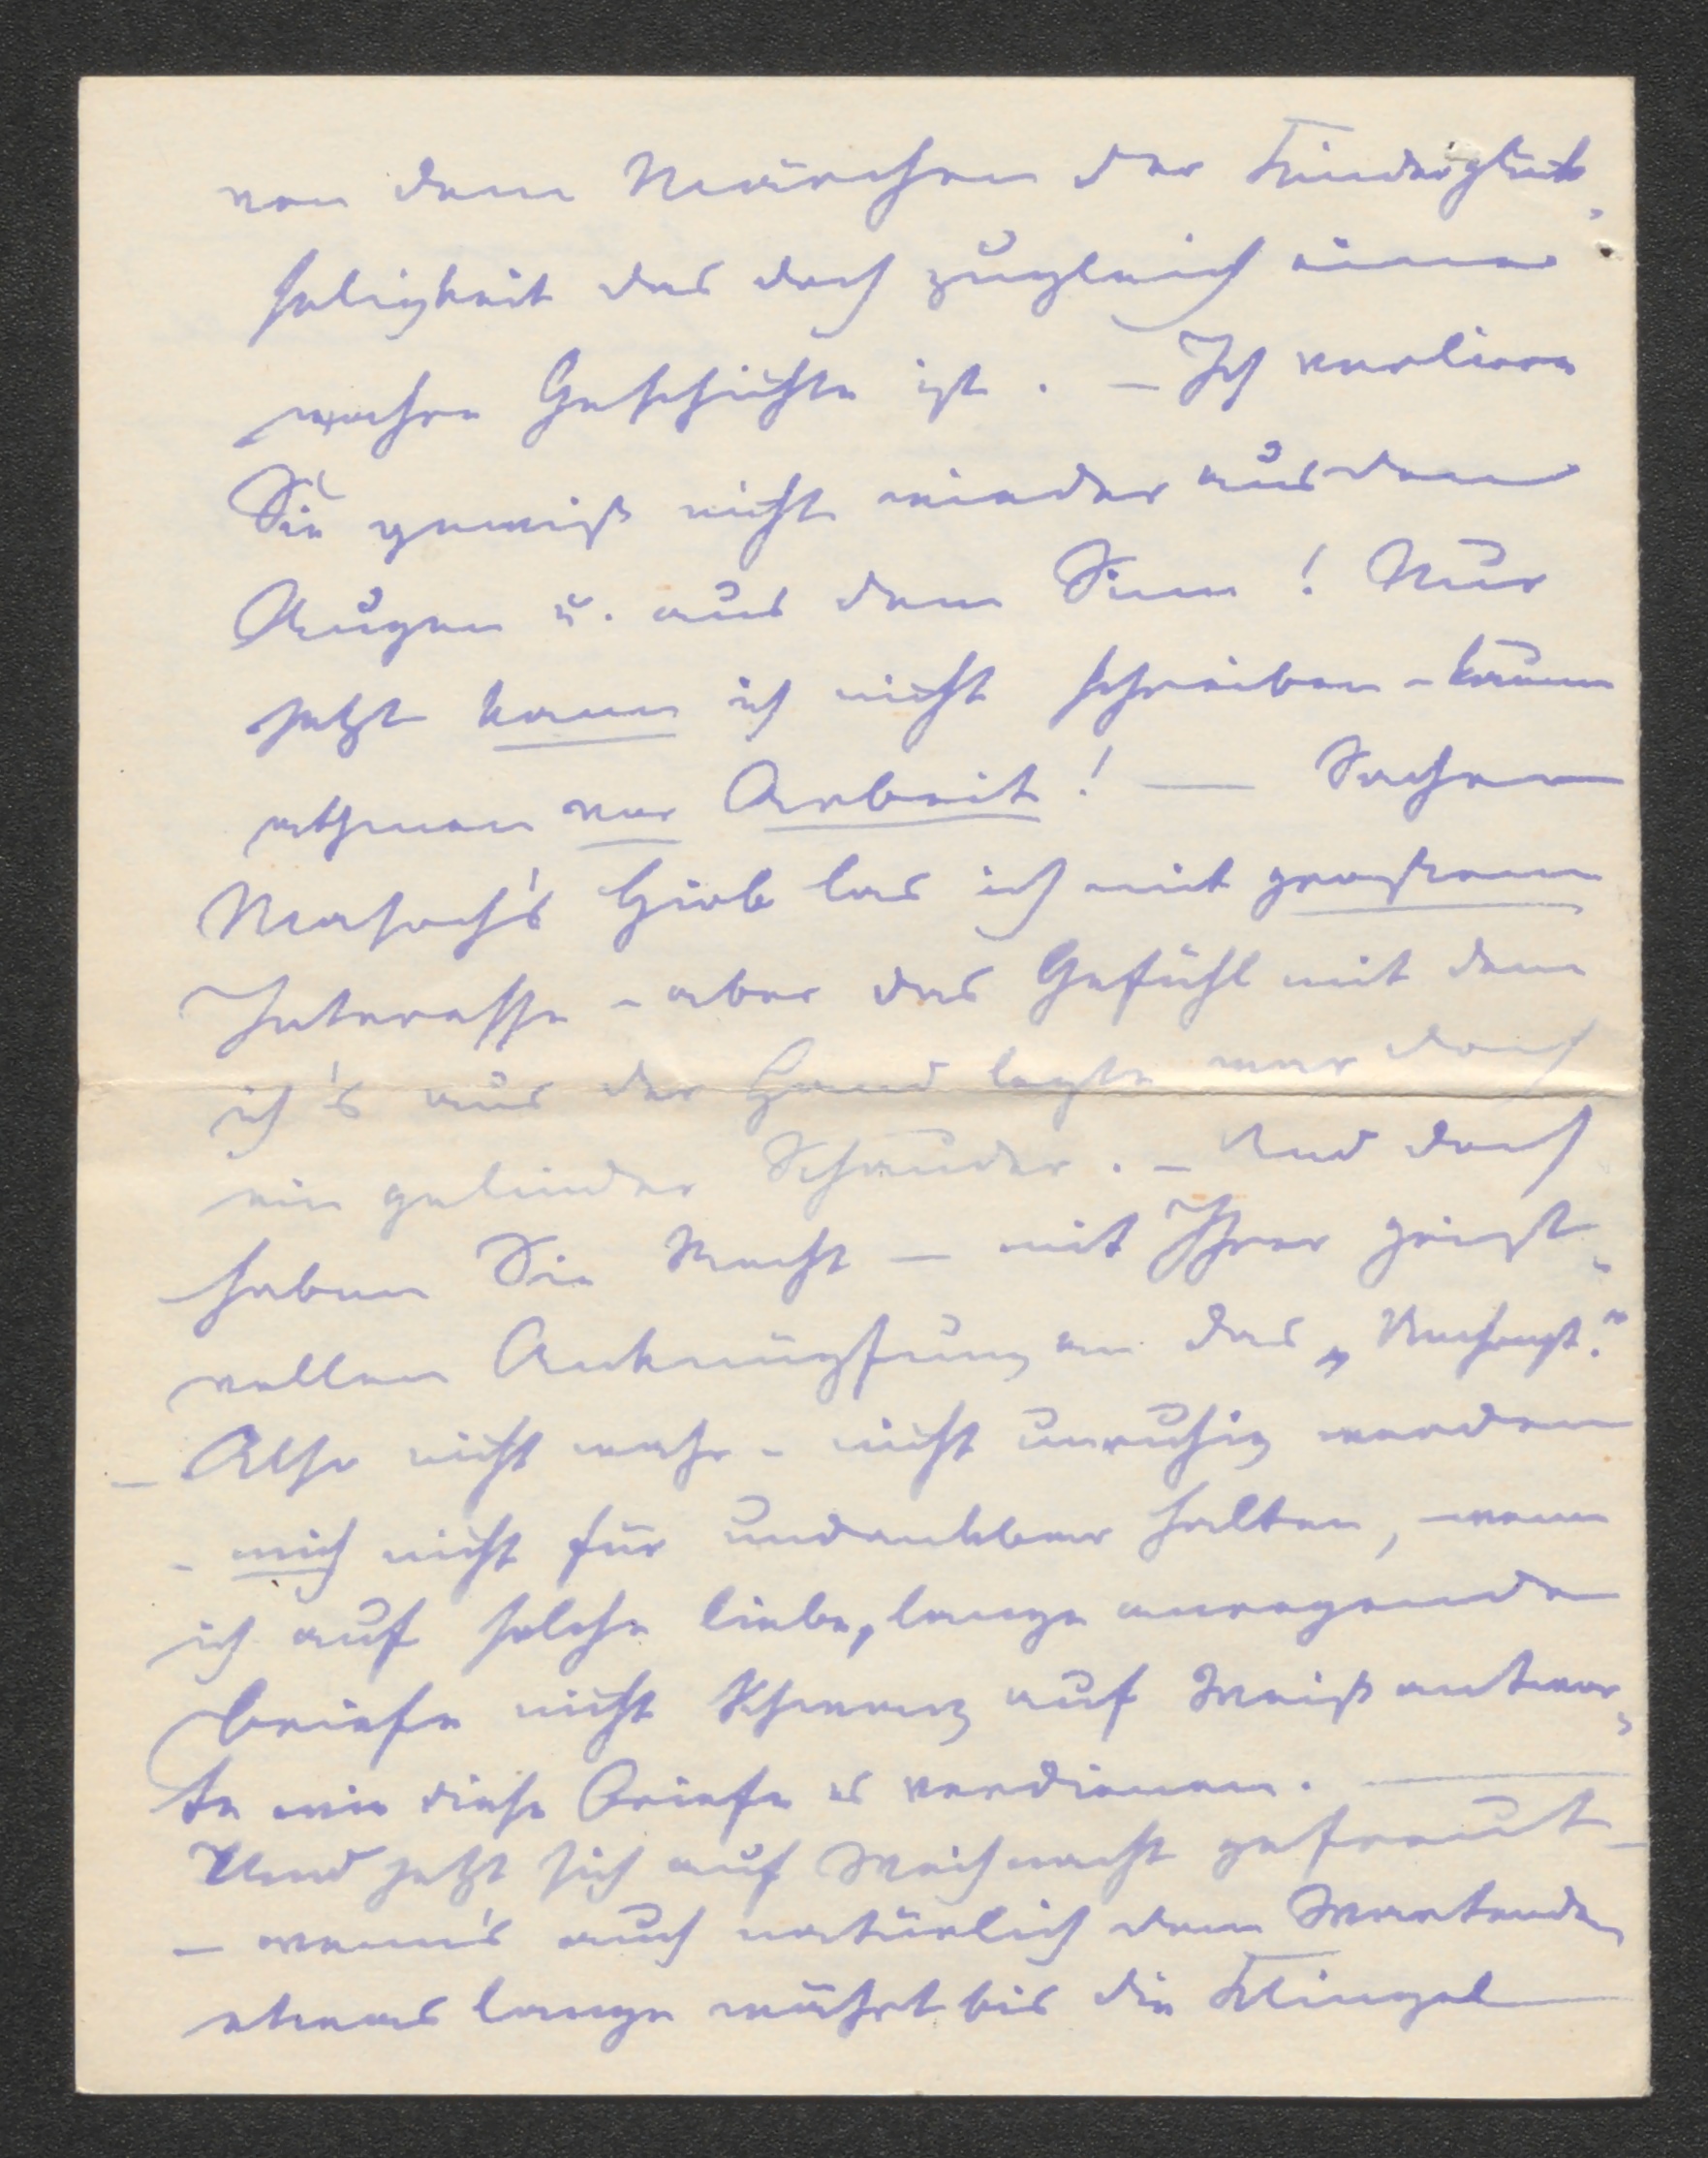 von dem Märchen der Kinderglück-
seligkeit das doch zugleich eine
wahre Geschichte ist. – Ich verliere
Sie gewiß nicht wieder aus den
Augen u. aus dem Sinn! Nur
jetzt kann ich nicht schreiben – kaum
athmen vor Arbeit! — Sacher
Masoch's Hiob las ich mit großem
Interesse – aber das Gefühl mit dem
ich's aus der Hand legte war doch
ein gelinder Schauder. – Und doch
haben Sie Recht – mit Ihrer geist-
vollen Anknüpfung an das
– Also nicht wahr – nicht unruhig werden
– mich nicht für undankbar halten, wenn
ich auf solche liebe, lange anregende
Briefe nicht Schwarz auf Weiß antwor-
te wie diese Briefe es verdienen. —
Und jetzt sich auf Weihnacht gefreut –
– wenn's auch natürlich dem Wartenden
etwas lange währt bis die Klingel